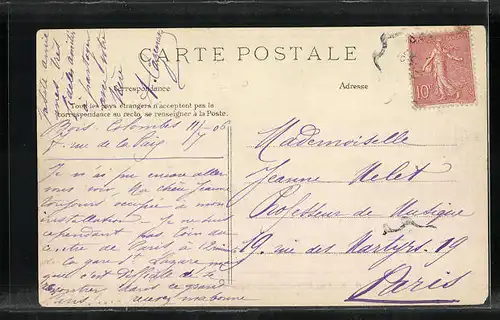 CARTE POSTALE
Correspondance
Adresse
Tous les pays étrangers n'acceptent pas la
correspondance au recto, se renseigner à la Poste.
10c
Bois-Colombes
7. rue de la Paix
Je n'ai pu encore aller
vous voir, Ma chère Jeanne
toujours occupée à mon
installation - Je ne suis
cependant pas loin du
centre de Paris, à
de la gare St Lazare mais
que c'est difficile de se
rencontrer dans ce grand
Paris!.... recevez ma bonne
Mademoiselle
Jeanne Melet
Professeur de Musique
19. rue des Martyrs. 19
Paris